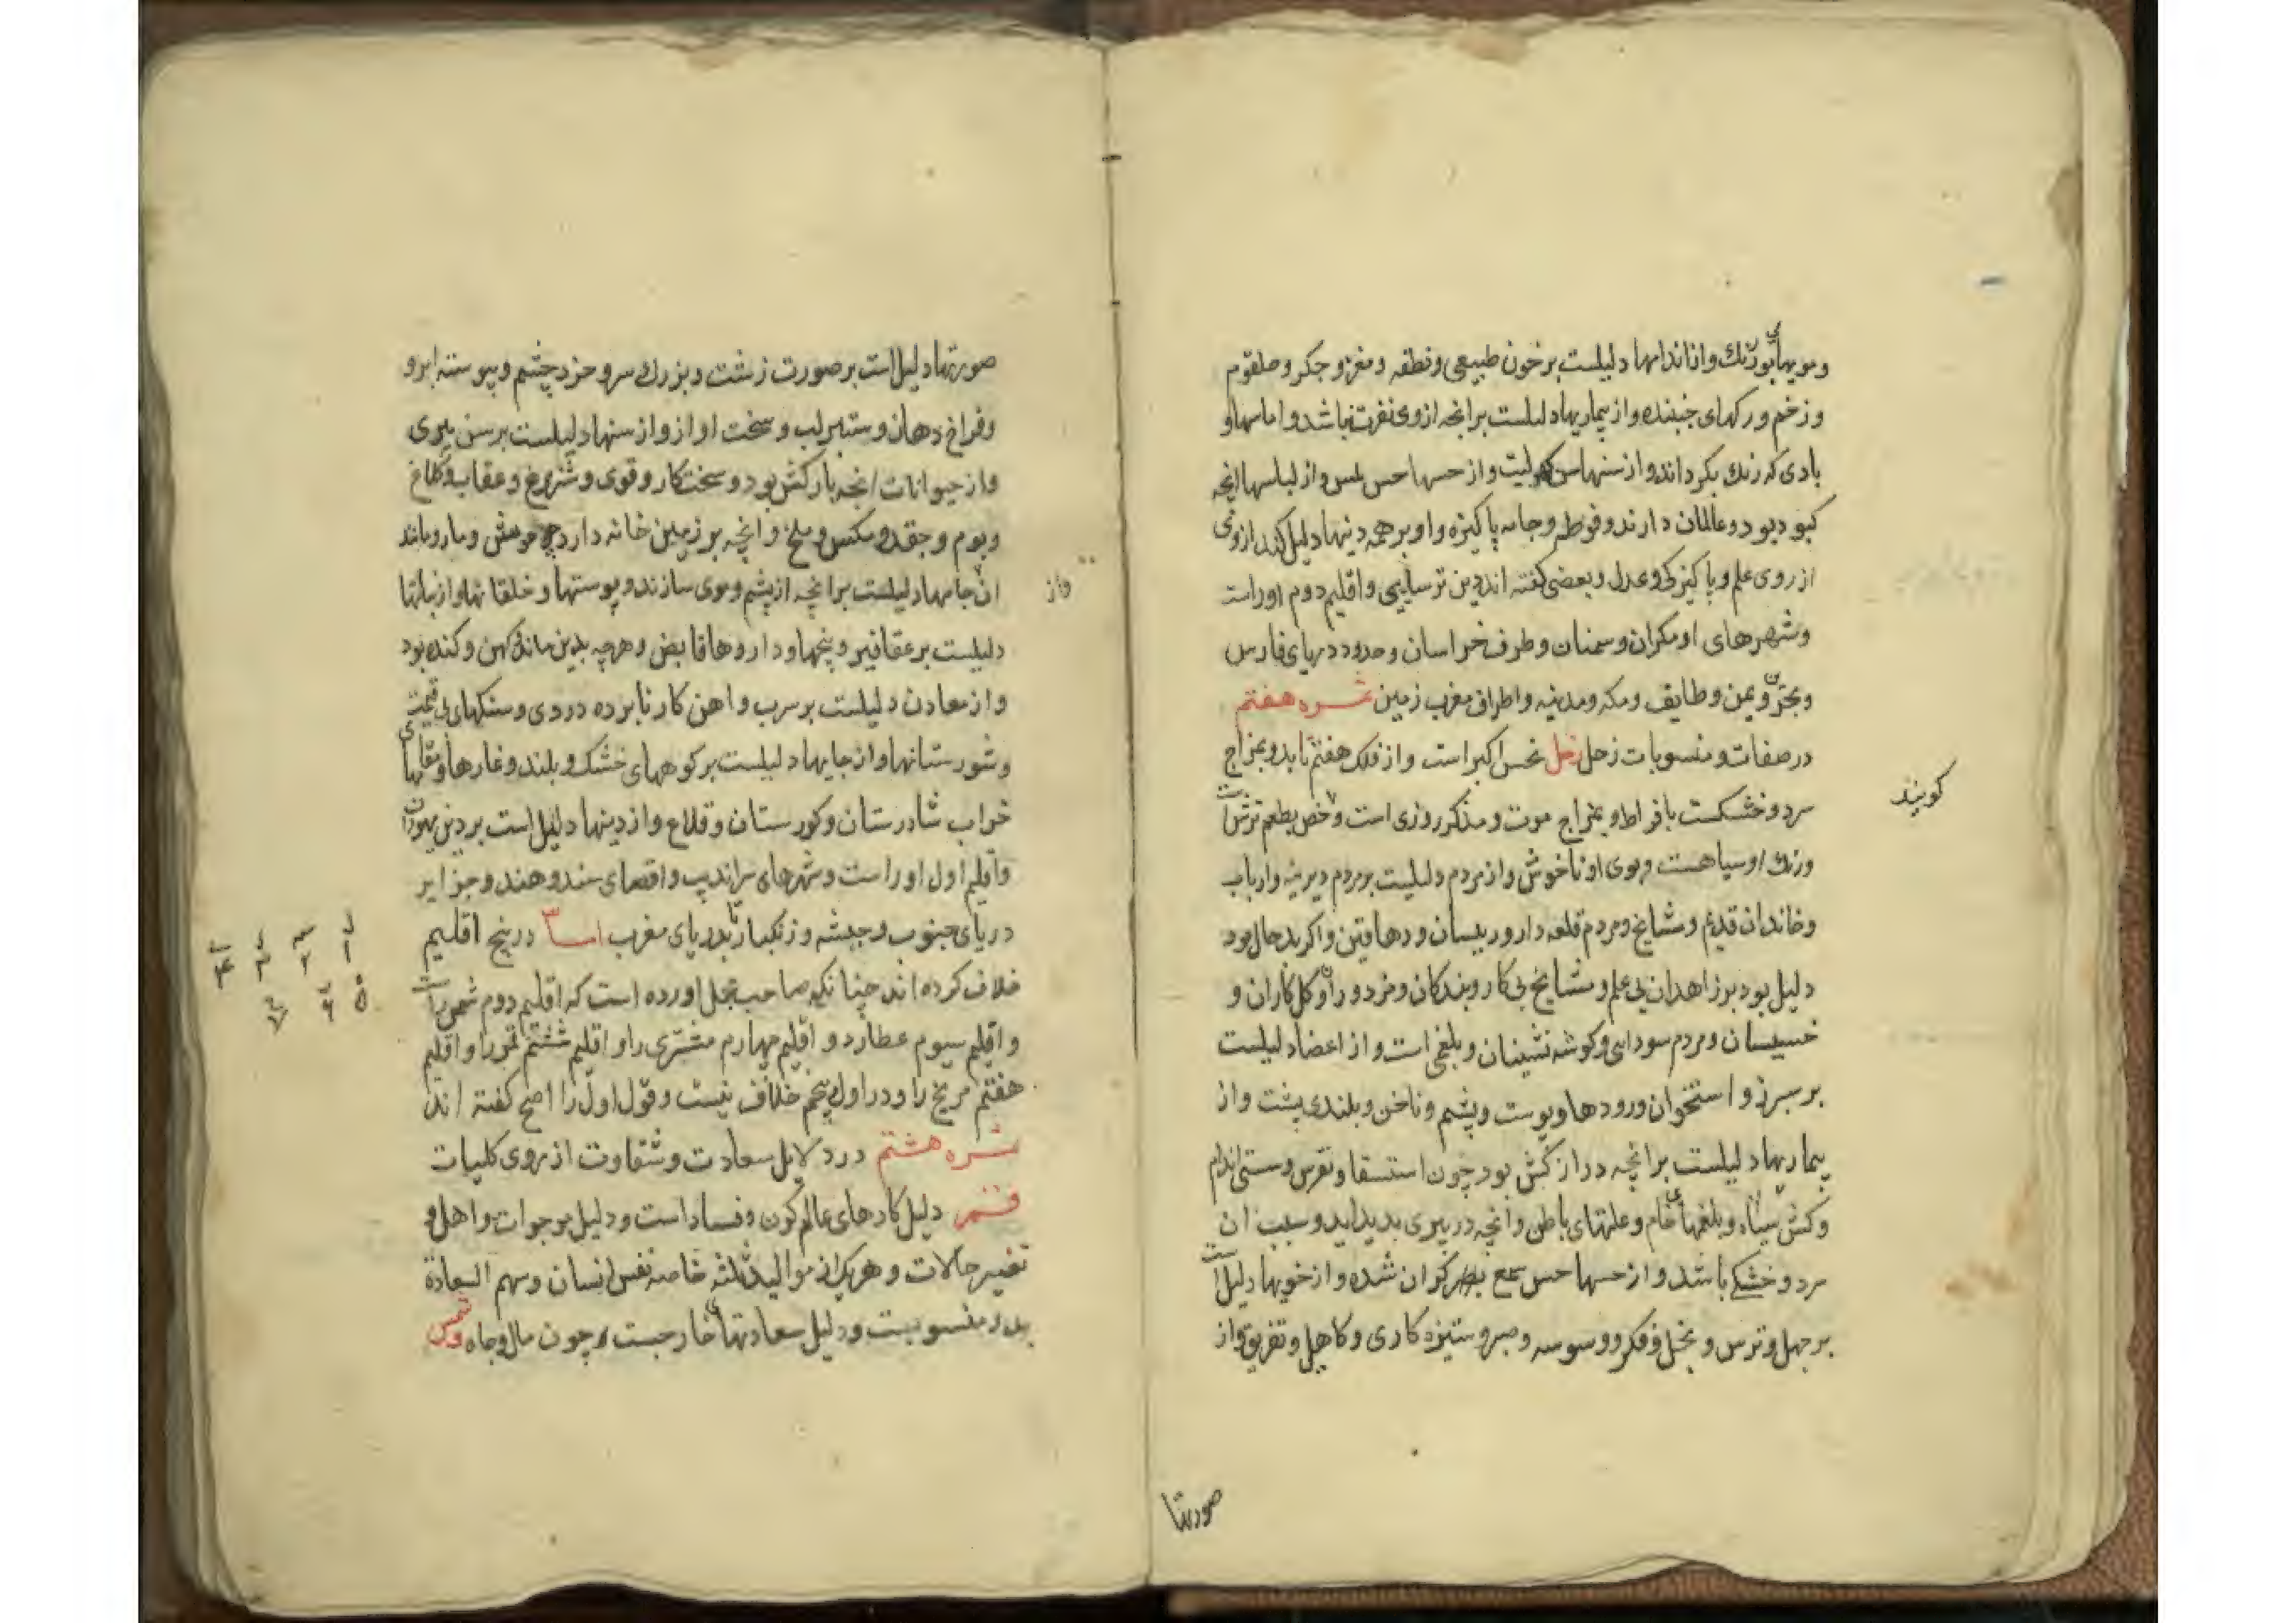 ومویهای بورنك واز اندامها دلیلست برخون طبیعی ونطفه ومغز وجکر وحلقوم
وزخم ورکهای جنبنده واز بیماریها دلیلست برانچه ازوی نفرت نباشد واماسها و
بادی که رنك بکرداند واز سنها سن کهولیت واز حسها حس لمس واز لباسها انچه
کبود بود وعالمان دارند وفوطه وجامه پاکیزه واو برهمه دینها دلیل کند ازوی
ازروی علم وپاکیزکی وعدل وبعضی کفته اند دین ترسایی واقلیم دوم اوراست
وشهرهای او مکران وسمنان وطرف خراسان وحدود دریای فارس
ویمن وطایف ومکه ومدینه واطراف مغرب زمین ثمره هفتم
درصفات ومنسوبات زحل زحل نحس اکبراست واز فلك هفتم تابد وبمزاج
سرد وخشکست بافراط وبمزاج موت ومذکر روزی است بطعم ترش است
ورنك او سیاهست وبوی او ناخوش واز مردم دلیلیست برمردم دیرینه وارباب
وخاندان قدیم ومشایخ ومردم قلعه دار ورییسان ودهاقین واکر بدحال بود
دلیل بود برزاهدان بی علم ومشایخ بی کار وبندکان ومزدوران وکل کاران و
خسیسان ومردم سودایی وکوشه نشینان وبلغمی است واز اعضا دلیلیست
برسپرز واستخوان ورودها وپوست وپشم وناخن وبلندی پشت واز
بیماریها دلیلست برانچه درازکش بود چون استسقا ونقرس وسستی اندام
وبلغمهای خام وعلتهای باطن وانچه درپیری بدیداید وسبب ان
سرد وخشکی باشد واز حسها حس سمع کران شده واز خویها دلیل است
برجهل وترس وبخل وفکر ووسوسه وصبر وستیزه کاری وکاهلی وتفریق واز
کویند
صورتها
صورتها دلیل است برصورت زشت وبزرك سر وخرد چشم وپیوسته ابرو
وفراخ دهان وستبر لب وسخت اواز واز سنها دلیلست برسن پیری
واز حیوانات انچه بارکش بود وسخت کار وقوی وشترمرغ وعقاب وکلاغ
وبوم وجغد ومکس وملخ وانچه برزمین خانه دارد چو موش ومار ومانند
ان جامها دلیلست برانچه ازپشم وموی سازند وپوستها وخلقانها واز نباتها
واز
دلیلیست برعقاقیر وبیخها وداروها قابض وهرچه بدین ماند کهن وکنده بود
واز معادن دلیلست برسرب واهن کار نابرده وروی وسنکهای بی قیمت
وشورستانها واز جایها دلیلست برکوههای خشك وبلند وغارها ومقامهای
خراب شادرستان وکورستان وقلاع واز دینها دلیل است بردین یهودان
واقلیم اول اوراست وشهرهای سراندیب واقصای سند وهند وجزایر
دریای جنوب وحبشه وزنکبار تا بدریای مغرب اما درپنج اقلیم
خلاف کرده اند چنانکه صاحب مجمل اورده است که اقلیم دوم شمس راست
واقلیم سیوم عطارد واقلیم چهارم مشتری را واقلیم ششم قمر را واقلیم
هفتم مریخ را ودر اول وپنجم خلاف نیست وقول اول را اصح کفته اند
ثمره هشتم در دلایل سعادت وشقاوت ازروی کلیات
قمر دلیل کارهای عالم کون وفساد است ودلیل
تغییر حالات وهریك از موالید ثلثه خاصه نفس انسان وسهم السعادة
بدو منسوبیست ودلیل سعادتهای خارجست چون مال وجاه وشمس